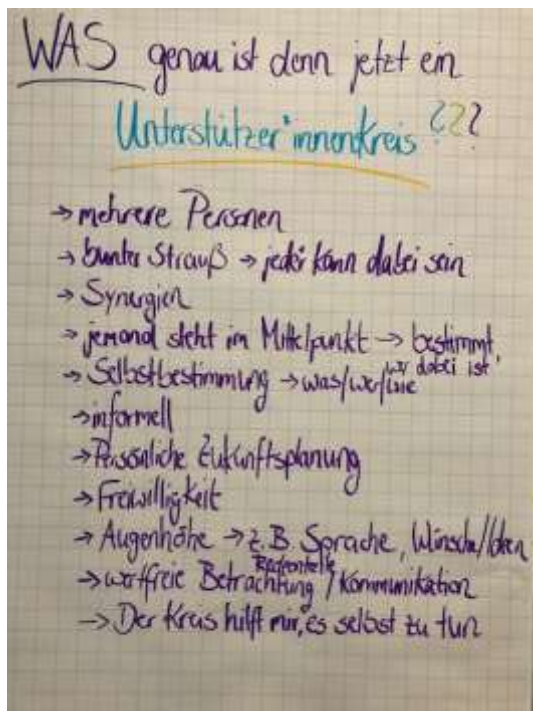 WAS genau ist denn jetzt ein
Unterstützer*innenkreis ???
→ mehrere Personen
→ bunter Strauß → jeder kann dabei sein
→ Synergien
→ jemand steht im Mittelpunkt → bestimmt,
wer dabei ist
→ Selbstbestimmung → was/wer/wie
→ informell
→ Persönliche Zukunftsplanung
→ Freiwilligkeit
→ Augenhöhe → z.B. Sprache, Wünsche/Ideen
Redeanteile
→ wertfreie Betrachtung / Kommunikation
→ Der Kreis hilft mir, es selbst zu tun